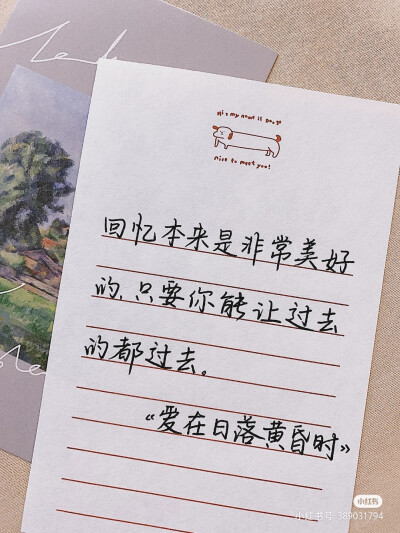 nice to meet you!
回忆本来是非常美好
的,只要你能让过去
的都过去。
“爱在日落黄昏时”
小红书
小红书号:389031794